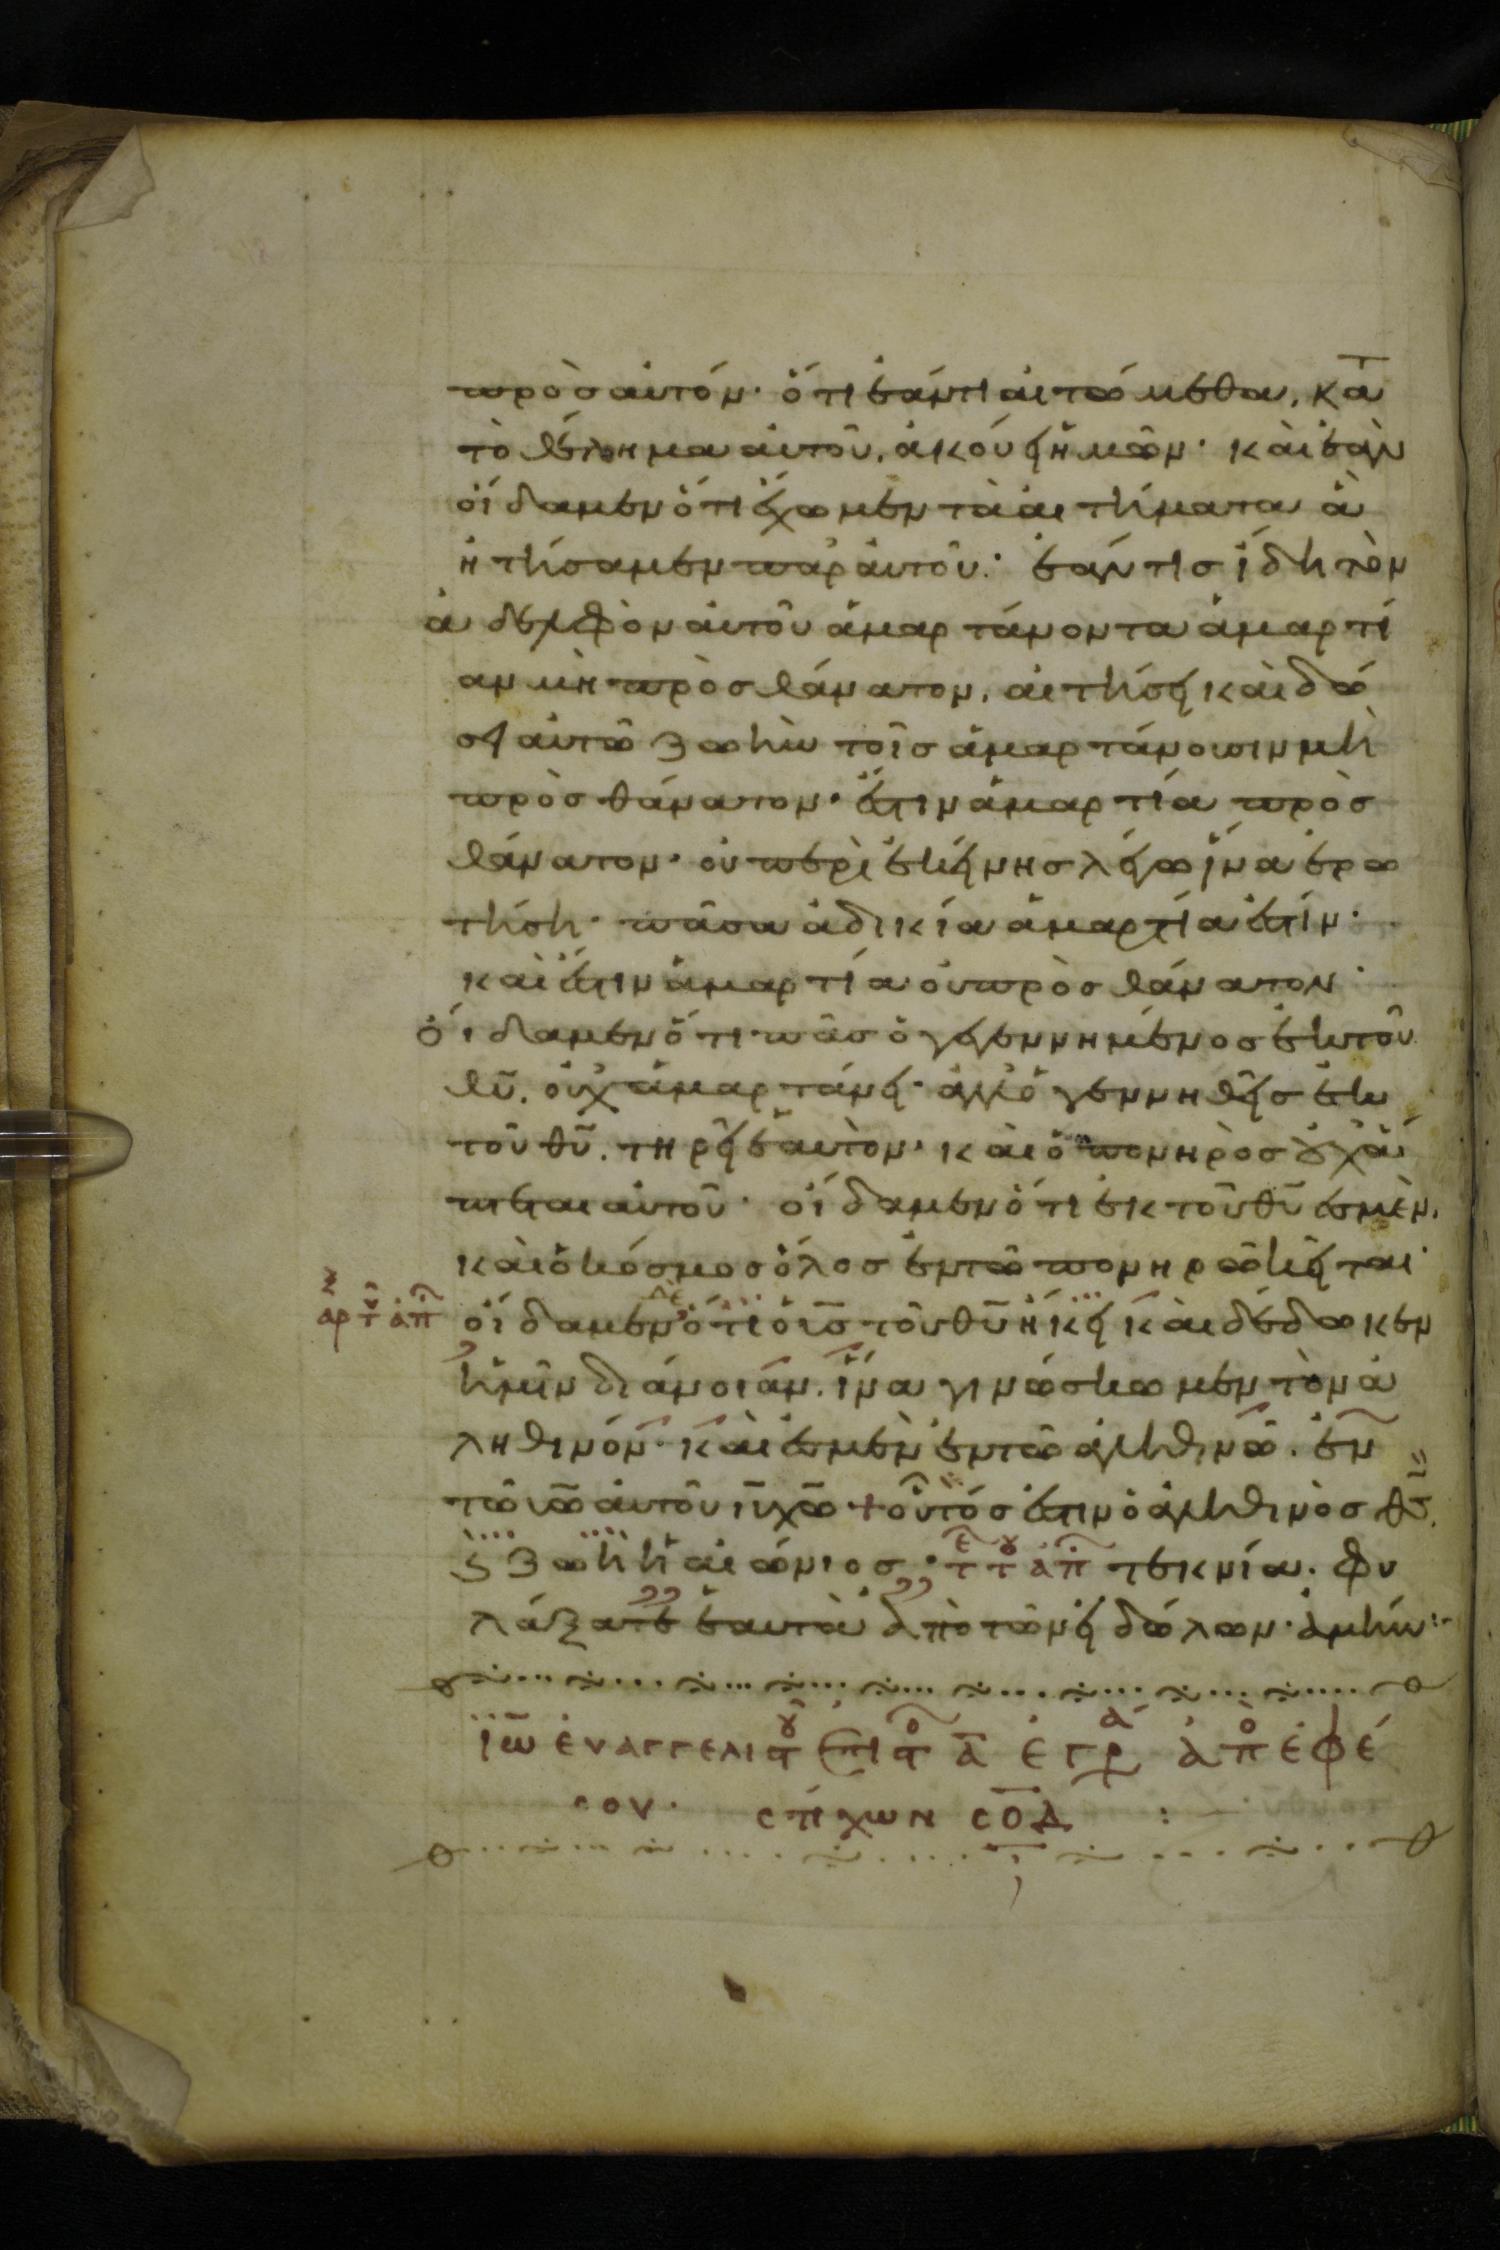 πρὸσ αὐτόν· ὅτι ἐάν τι αἰτώμεθα, κα̅
τὸ θέλημα αὐτοῦ, ἀκούει ἡμῶν· καὶ ἐὰν
οἴδαμεν ὅτι ἔχωμεν τὰ αἰτήματα ἃ
ἠτήσαμεν παρ αὐτοῦ· ἐάν τισ ἴδη τὸν
ἀδελφὸν αὐτοῦ ἁμαρτάνοντα ἁμαρτί
αν μὴ πρὸσ θάνατον, αἰτήσει καὶ δώ
σει αὐτῶ ζωὴν τοῖσ ἁμαρτάνουσιν μὴ
πρὸσ θάνατον· ἔστιν ἁμαρτία πρὸσ
θάνατον· οὐ περὶ ἐκείνησ λέγω ἵνα ἐρω
τήση· πᾶσα ἀδικία ἁμαρτία ἐστίν·
καὶ ἔστιν ἁμαρτία οὐ πρὸσ θάνατον·
Οἴδαμεν ὅτι πᾶσ ὁ γεγεννημένοσ ἐκ τοῦ
θυ̅, οὐχ ἁμαρτάνει· ἀλλ ὁ γεννηθεῖσ ἐκ
τοῦ θυ̅, τηρεῖ ἑαυτὸν· καὶ ὁ πονηρὸσ οὐχ ἅ
πτεται αὐτοῦ· οἴδαμεν ὅτι ἐκ τοῦ θυ̅ ἐσμὲν,
καὶ ὁ κόσμοσ ὅλοσ ἐν τῶ πονηρῶ κεῖται·
οἴδαμεν δὲ ὅτι ὁ υισ̅ τοῦ θυ̅ ἥκει καὶ δέδωκεν
ἡμῖν διάνοιαν, ἵνα γινώσκωμεν τὸν ἀ
ληθινόν· καὶ ἐσμὲν ἐν τῶ ἀληθινῶ, ἐν
τῶ υιω̅ αὐτοῦ ιυ̅ χω̅ + οὗτόσ ἐστιν ὁ ἀληθινὸσ θσ̅,
ϗ ζωὴ ἡ αἰώνιοσ· τεκνία, φυ
λάξατε ἑαυτὰ ἀπὸ τῶν εἰδώλων· ἀμήν:
ιω̅ ευαγγελιστ ἐπιστ α̅ ἐγρ ἀπ ἐφέ
σου· στίχων σο̅δ :